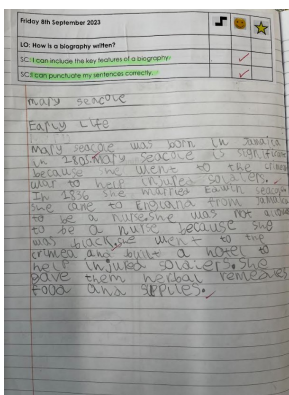 Friday 8th September 2023
LO: How is a biography written?
SC: I can include the key features of a biography.
SC: I can punctuate my sentences correctly.
mary seacole
Early Life
Mary seacole was born in Jamaica
in 1805. Mary seacole is significant
because she went to the crimea
war to help injured soldiers.
In 1836 she married Edwin seacole
she came to England from Jamaica
to be a nurse. she was not allowed
to be a nurse because she
was black. she went to the
crimea and built a hotel to
help injured soldiers. she
gave them herbal remedies
food and